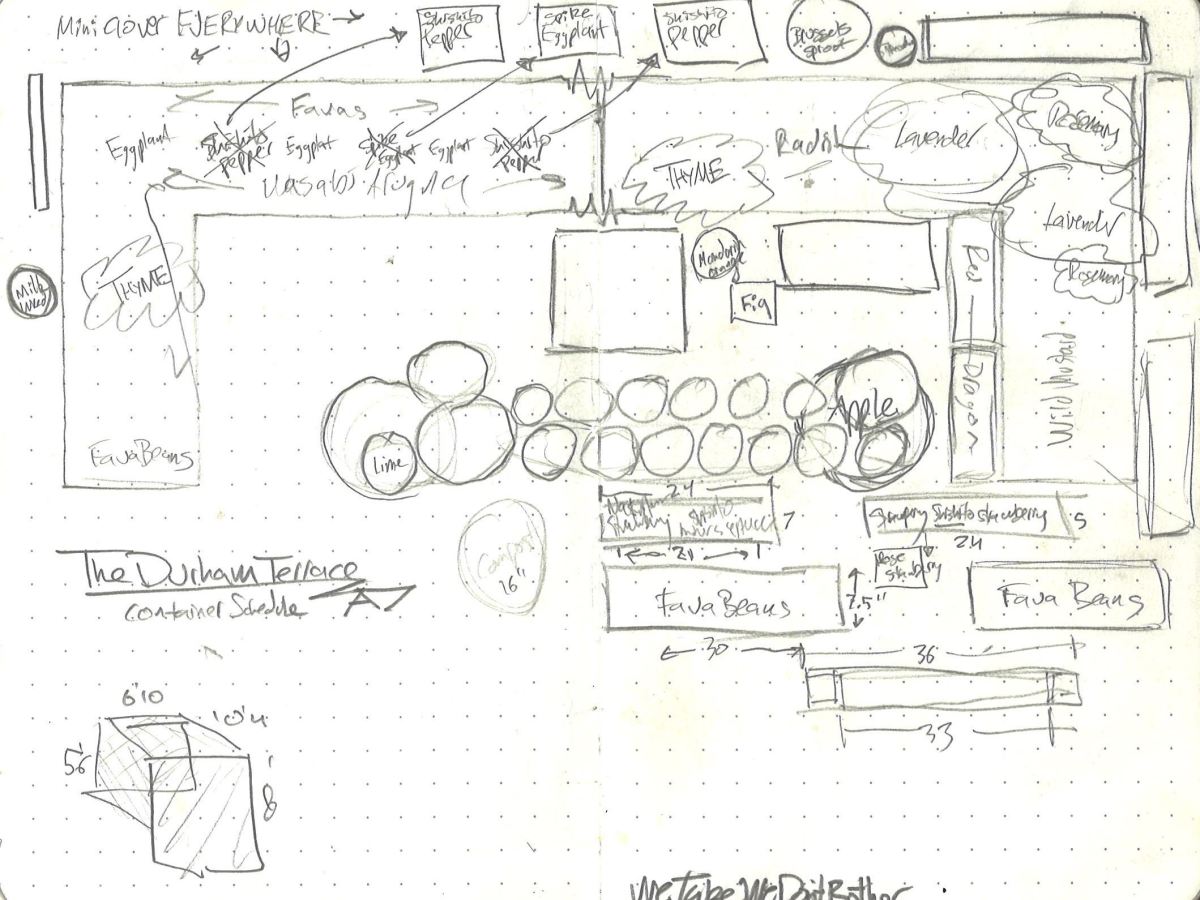 Mini Clover EVERYWHERE
Shishito
Pepper
Spike
Eggplant
Shishito
Pepper
Brussels
Sprout
Favas
Eggplant
Shishito
Pepper
Eggplant
Spike
Eggplant
Eggplant
Shishito
Pepper
Wasabi Arugula
THYME
Radish
Lavender
Rosemary
Lavender
Rosemary
Milk
Weed
THYME
Mandarin
orange
Fig
Red
Dragon
Wild Mustard
Apple
Lime
Fava Beans
24
7
21
Strawberry Shishito Strawberry
5
24
Rose
Strawberry
Compost
16"
The Durham Terrace
Container Schedule
A7
Fava Beans
7.5"
Fava Beans
30
36
33
6'10
10'4
5'6
8'
We Take We Don't Bother